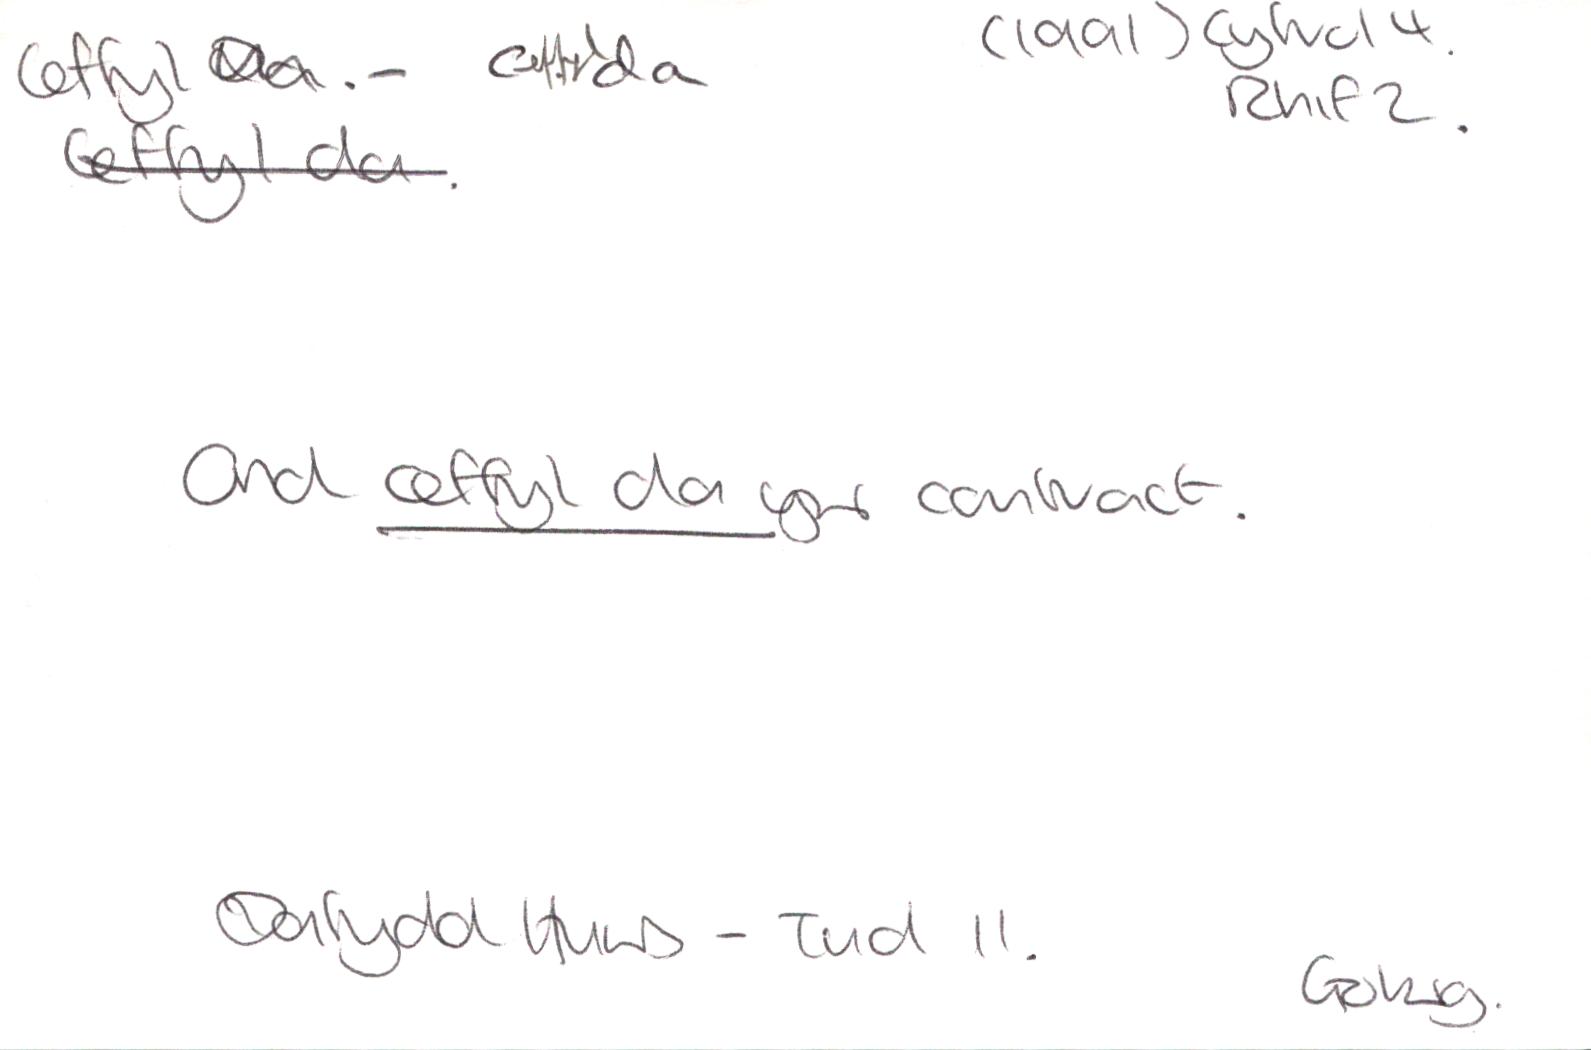 Ceffyl Da. - ceffyl da
(1991) Cyfrol 4.
Rhif 2.
Ceffyl da.
Ond ceffyl da yw contract.
Dafydd Huws - Tud 11.
Golwg.